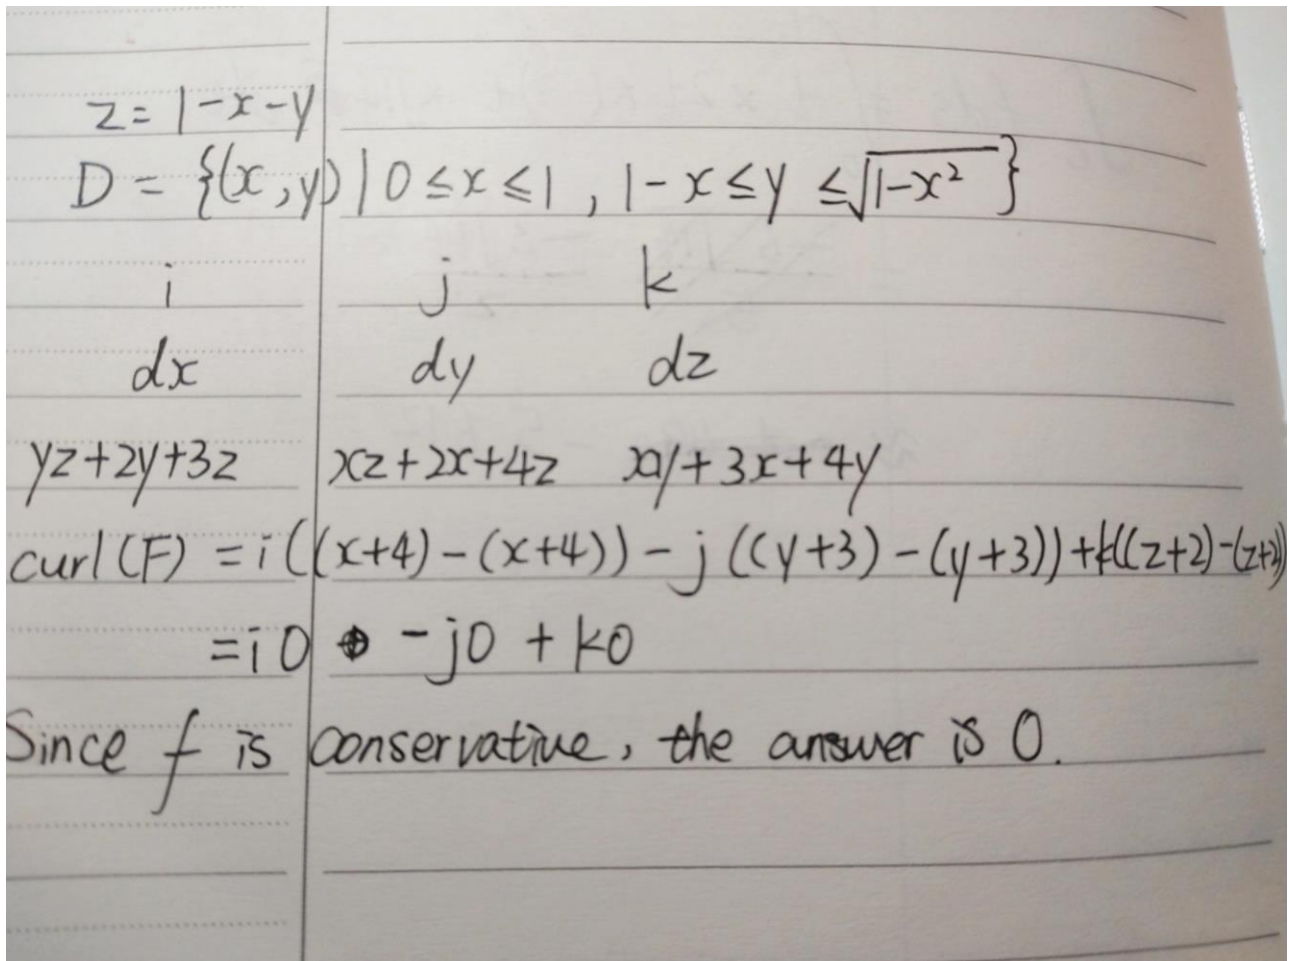 z = 1-x-y
D = {(x,y) | 0 ≤ x ≤ 1, 1-x ≤ y ≤ √(1-x²)}
i j k
dx dy dz
yz+2y+3z xz+2x+4z xy+3x+4y
curl(F) = i((x+4)-(x+4)) - j((y+3)-(y+3)) + k((z+2)-(z+2))
= i0 - j0 + k0
Since f is conservative, the answer is 0.